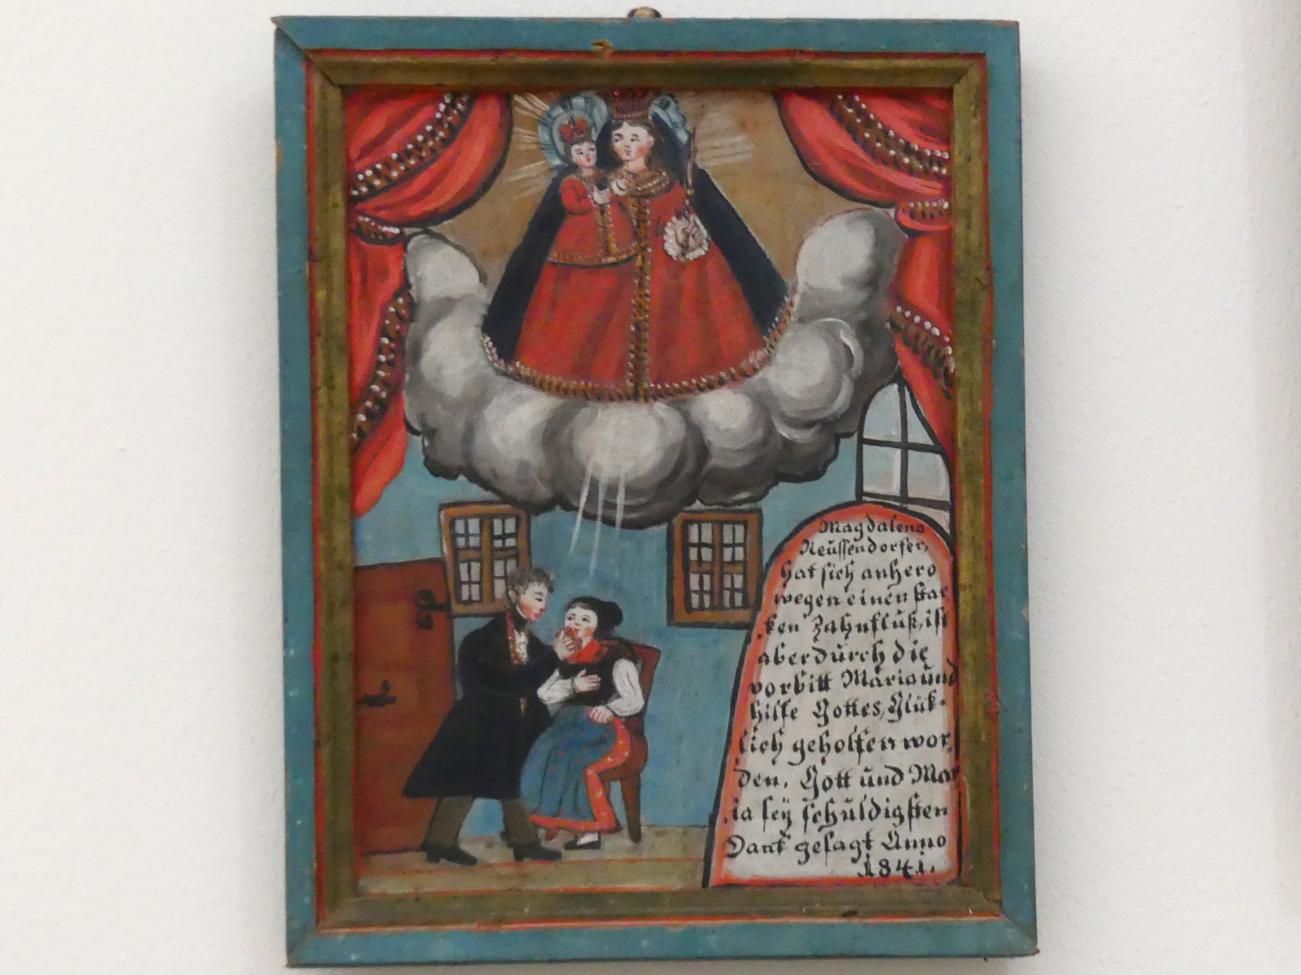 Magdalena
Neüssendorfer,
hat sich anhero
wegen einen star
ken Zahnflüß, ist
aber dürch die
vorbitt Maria ünd
hilfe Gottes, Glük-
lich geholfen wor,
den, Gott ünd Mar
ia seÿ schüldigsten
Dank gesagt Anno
1841.